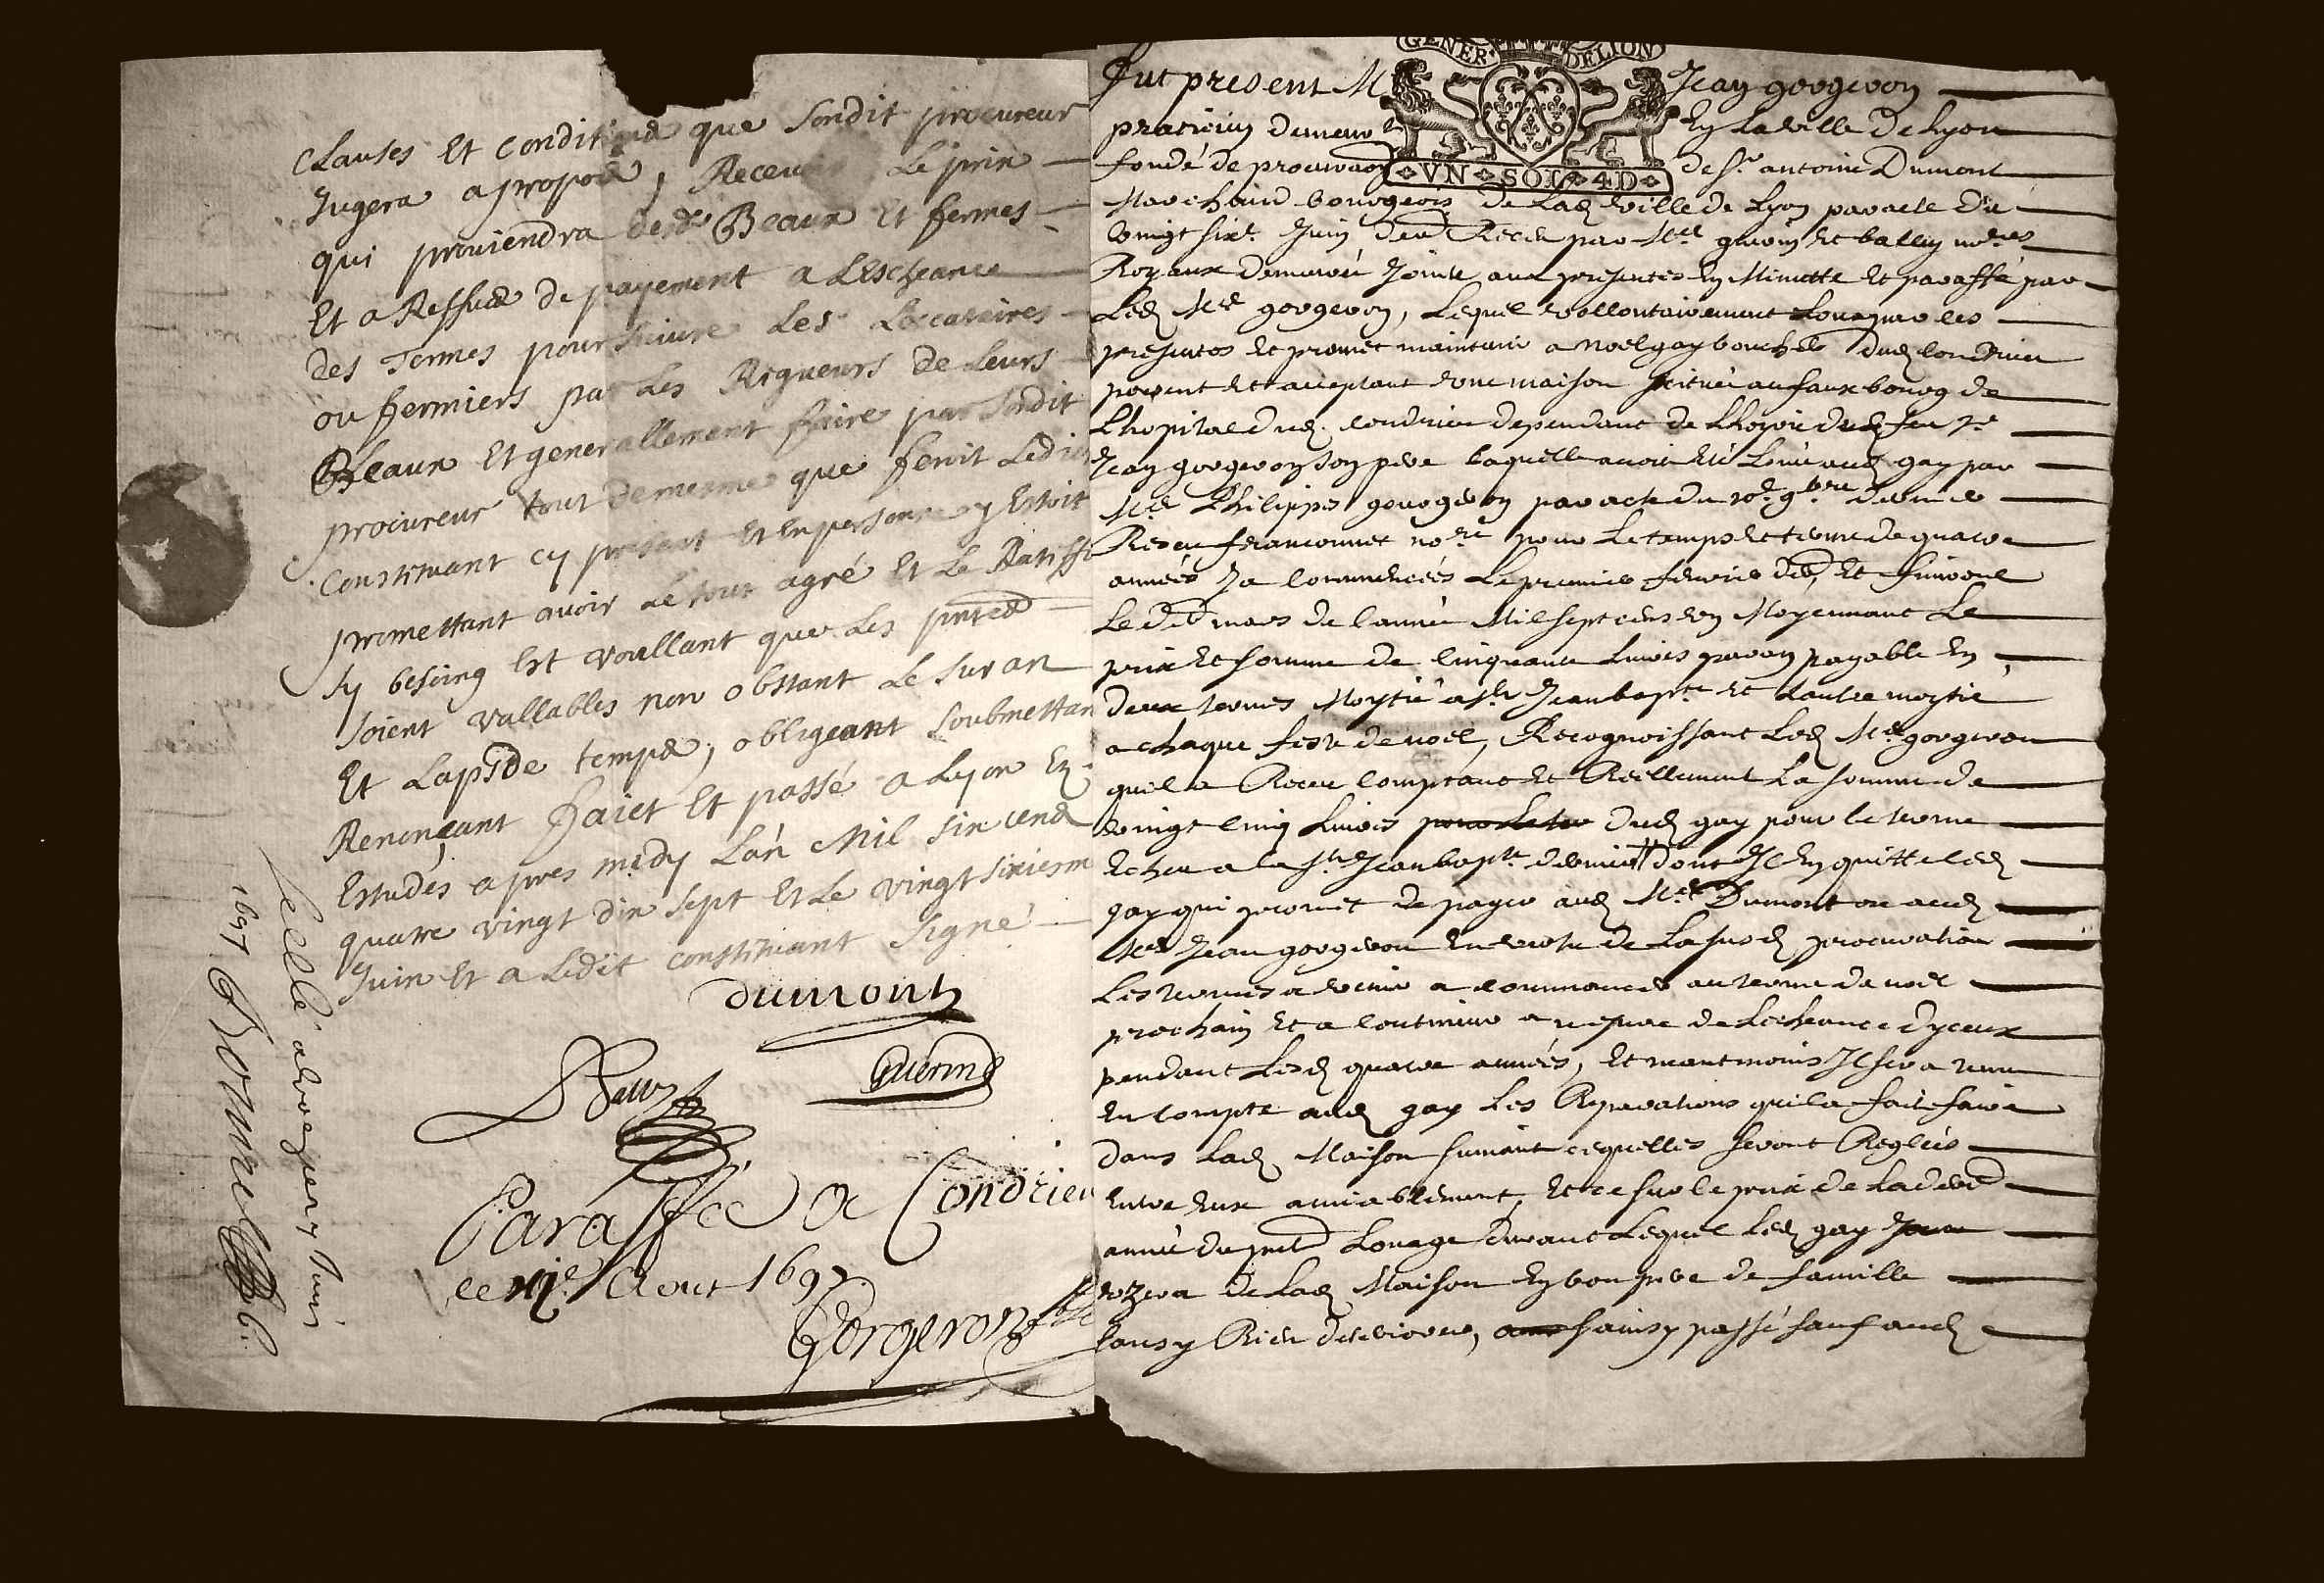 Clauses Et conditions que Sondit procureur
Jugera apropos, Recevoir Le prix
qui proviendra desds Beaux Et fermes
Et a Reffus de payement a Lescheance
des Termes poursuivre Les Locataires
ou fermiers par Les Rigueurs de Leurs
Beaux Et generallement faire par Sondit
procureur tout de mesme que feroit Ledit
Constituant cy present Et En personne y Estoit
promettant avoir Le tout agré Et Le Ratiffi
sy besoing Est voullant que Les pntes
soient vallables non obstant Le Suran
Et Laps de temps, obligeant Soubmettan
Renonçant faict Et passé a Lyon Es
Estudes apres midy L'an Mil Six cens
quatre vingt dix Sept Et Le vingt sixiesm
Juin Et a Ledit constituant Signé
dumont
Guerin
Paraffée A Condrieu
ce Aout 1697
Gorgeron
scellé a Lyon Juin
1697
GENER DELION
VN SOL 4D
Fut present M Jean gorgeron
praticien demeur En La ville De Lyon
fondé de procuraon de Sr antoine Dumont
Marchand bourgeois De Lad ville de Lyon par acte du
vingt six Juin der Receu par Mes guerin Et balley nores
Royaux demeuré Jointe aux presentes En Minutte Et paraffé par
Led Me gorgeron, Lequel vollontairement Loue par les
presentes Et promet maintenir a Noel gay boucher dud Condrieu
present Et acceptant une maison scituée au fauxbourg de
Lhopital dud. Condrieu dependant de Lhoirie dud feu Sr
Jean gorgeron son pere laquelle avoit Eté Louée aud gay par
Me Philippe gorgeron par acte du 10e 9bre dernier
Receu franconnet nore pour Le temps Et terme de quatre
années Ja Commencées Le premier fevrier der, Et finiront
Le der mars de l'année Mil sept cens un Moyennant Le
prix Et somme de Cinquante Livres par an payable En
deux termes Moytié a St Jean bapte Et Lautre moytié
a chaque feste de noel, Recognoissant Led Me gorgeron
quil a Receu Comptant Et Reellement La somme de
vingt Cinq Livres dud gay pour le terme
Echeu a la St Jean bapte dernier dont Il En quitte led
gay qui promet de payer aud Me Dumont ou aud
Me Jean gorgeron En vertu de La susd procuration
Les termes a venir a Commancer au terme de noel
prochain Et a Continuer a mesure de Lecheance dyceux
pendant Lesd quatre années, Et neantmoins Il sera tenu
En Compte aud gay Les Reparations quil a fait faire
dans Lad Maison suivant cequelles seront Reglées
Entre Eux amiablement, Et ce sur le prix de La der
année du pnt Louage durant Lequel Led gay
uzera de Lad Maison En bon pere de famille
sans y Rien deteriorer, sainsy passé sauf aud